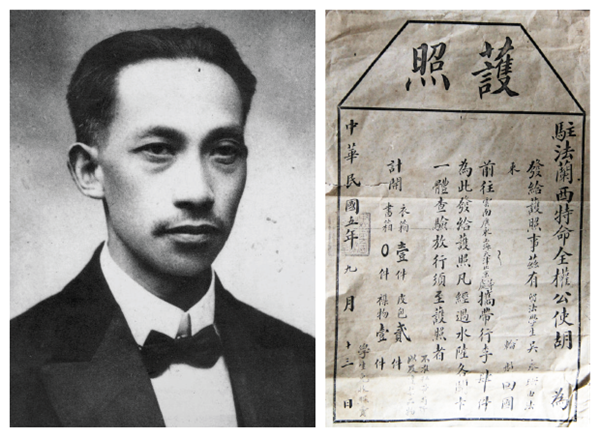 護照
駐法蘭西特命全權公使胡 為
發給護照事茲有
回國
前往 攜帶行李
為此發給護照凡經過水陸各關卡
一體查驗放行須至護照者
計開 衣箱壹件 皮包貳件
書箱0件 雜物壹件
中華民國五年九月十三日